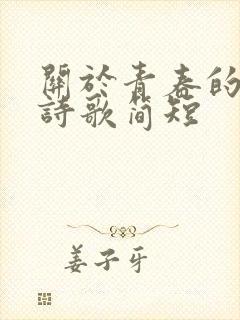 關於青春的
詩歌简短
姜子牙